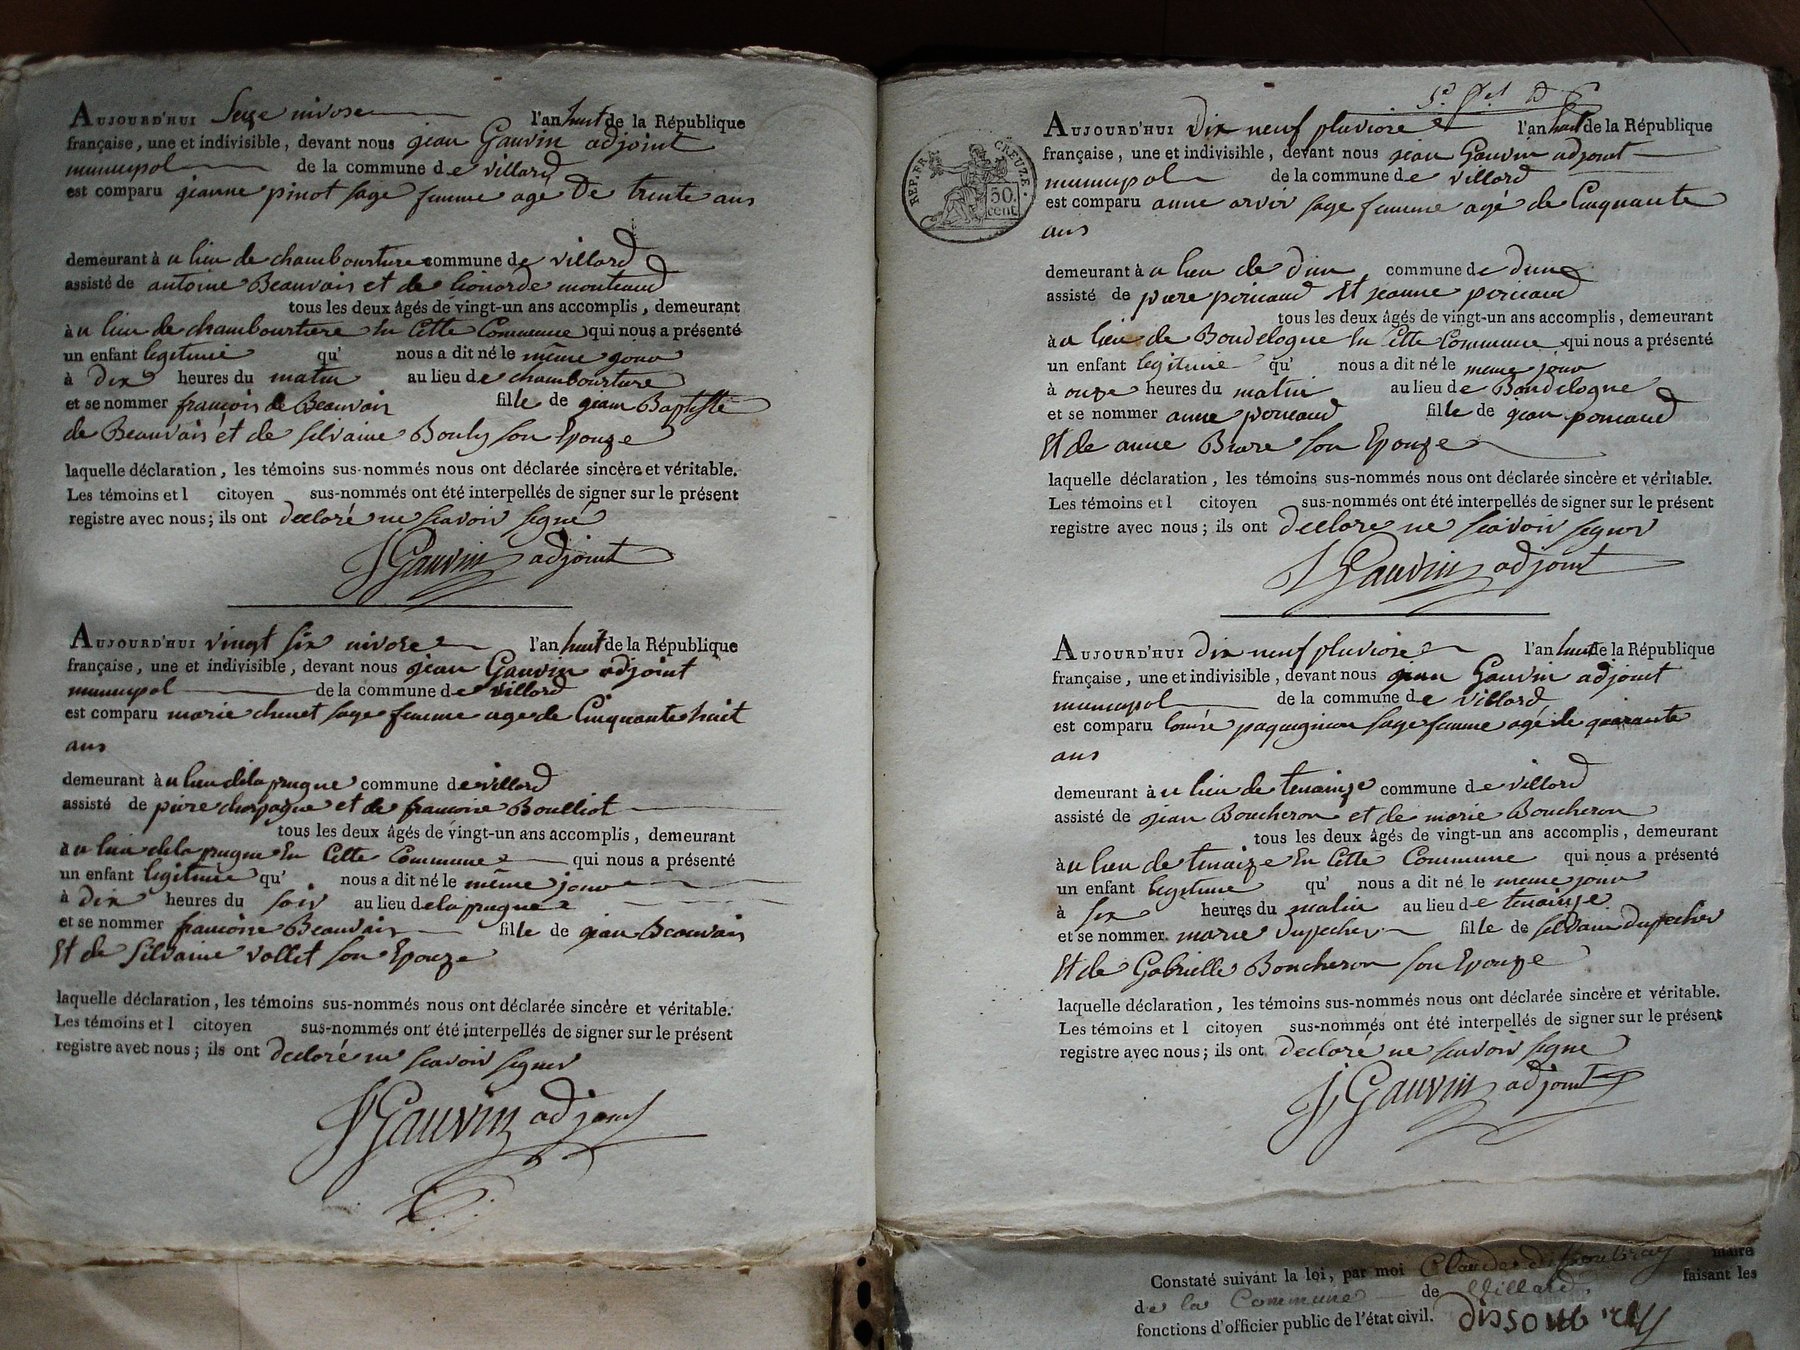 AUJOURD'HUI Seize nivose l'an huit de la République
française, une et indivisible, devant nous jean Gauvin adjoint
municipal de la commune de villard
est comparu jeanne pinot sage femme agé De trente ans
demeurant à u lieu de chambourture commune de villard
assisté de antoine Beauvais et de lionarde monteaud
tous les deux âgés de vingt-un ans accomplis, demeurant
à u lieu de chambourtiere En Cette Commune qui nous a présenté
un enfant legitime qu' nous a dit né le même jour
à Dix heures du matin au lieu de chambourture
et se nommer françois de Beauvais fille de jean Baptiste
de Beauvais et de silvaine Bouly son Epouze
laquelle déclaration, les témoins sus-nommés nous ont déclarée sincère et véritable.
Les témoins et l citoyen sus-nommés ont été interpellés de signer sur le présent
registre avec nous; ils ont declaré ne scavoir signé
J Gauvin adjoint
AUJOURD'HUI vingt six nivose l'an huit de la République
française, une et indivisible, devant nous jean Gauvin adjoint
municipal de la commune de villard
est comparu marie chenet sage femme age de Cinquante huit
ans
demeurant à u lieu de la prugne commune de villard
assisté de piere chorpagne et de francoise Boulliot
tous les deux âgés de vingt-un ans accomplis, demeurant
à u lieu de la prugne En Cette Commune qui nous a présenté
un enfant legitime qu' nous a dit né le même jour
à dix heures du soir au lieu de la prugne
et se nommer francoise Beauvais fille de jean Beauvais
Et de Silvaine vallet son Epouze
laquelle déclaration, les témoins sus-nommés nous ont déclarée sincère et véritable.
Les témoins et l citoyen sus-nommés ont été interpellés de signer sur le présent
registre avec nous; ils ont declaré ne scavoir signer
J Gauvin adjoint
REP. FRA. CREUZE.
50.
cent.
AUJOURD'HUI Dix neuf pluviose l'an huit de la République
française, une et indivisible, devant nous jean Gauvin adjoint
municipal de la commune de villard
est comparu anne arvir sage femme agé de Cinquante
ans
demeurant à u lieu de Dun commune de Dun
assisté de piere pericaud Et jeanne pericaud
tous les deux âgés de vingt-un ans accomplis, demeurant
à u lieu de Boudelogne En Cette Commune qui nous a présenté
un enfant legitime qu' nous a dit né le meme jour
à onze heures du matin au lieu de Boudelogne
et se nommer anne perieaud fille de jean perieaud
Et de anne Briare son Epouze
laquelle déclaration, les témoins sus-nommés nous ont déclarée sincère et véritable.
Les témoins et l citoyen sus-nommés ont été interpellés de signer sur le présent
registre avec nous; ils ont declare ne scavoir signer
J Gauvin adjoint
AUJOURD'HUI dix neuf pluviose l'an huit de la République
française, une et indivisible, devant nous jean Gauvin adjoint
municapal de la commune de Villard
est comparu louise paquignon sage femme agé de quarante
ans
demeurant à u lieu de tenaize commune de villard
assisté de jean Boucheron et de marie Boucheron
tous les deux âgés de vingt-un ans accomplis, demeurant
à u lieu de tenaize En Cette Commune qui nous a présenté
un enfant legitime qu' nous a dit né le meme jour
à six heures du matin au lieu de tenaize
et se nommer. marie Dupecher fille de silvain dupecher
Et de Gabrielle Boucheron son Epouze
laquelle déclaration, les témoins sus-nommés nous ont déclarée sincère et véritable.
Les témoins et l citoyen sus-nommés ont été interpellés de signer sur le présent
registre avec nous; ils ont declaré ne scavoir signe
J Gauvin adjoint
Constaté suivant la loi, par moi Claude dissoubray maire
de la Commune de Villard. faisant les
fonctions d'officier public de l'état civil. dissoubray